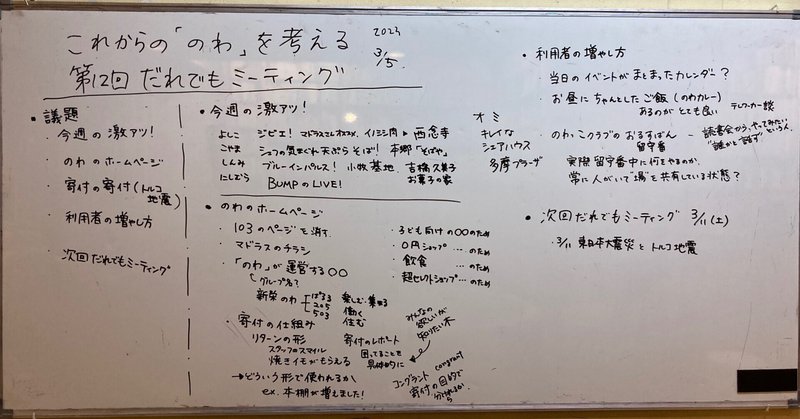 これからの「のわ」を考える
第12回 だれでもミーティング
2023
3/5.
・議題
今週の激アツ!
・のわのホームページ
・寄付の寄付(トルコ地震)
・利用者の増やし方
・次回だれでもミーティング
・今週の激アツ!
よしこ ジビエ! マドラスマルオススメ、イノシシ肉 西念寺
こやま シェフの気まぐれ天ぷらそば! 本郷「そばや」
しんみ ブルーインパルス! 小牧基地、吉橋久美子
にしむら BUMPのLIVE! お菓子の家
オミ
キレイな
シェアハウス
多摩プラーザ
・のわのホームページ
・103のページを消す
・マドラスのチラシ
・「のわ」が運営する〇〇
グループ名?
新栄のわ
ぱるる 楽しむ・集まる
205 働く
503 住む
・寄付の仕組み
リターンの形
スタッフのスマイル
焼きイモがもらえる
寄付のレポート
困ってることを
具体的に
→どういう形で使われるか
ex. 本棚が増えました!
・子ども向けの〇〇のため
・0円ショップ…のため
・飲食 …のため
・超セレクトショップ…のため
みんなの
欲しいが
知りたい木
コングラント congrant
寄付の目的で
分けれるから
・利用者の増やし方
・当日のイベントがまとまったカレンダー?
・お昼にちゃんとしたご飯(のわカレー)
あるのがとても良い テレワーカー談
・のわっこクラブのおるすばん
留守番
読書会から、やってみたい
"誰かと話す"という人、
実際 留守番中に何をやるのか、
常に人がいて"場"を共有している状態?
・次回だれでもミーティング 3/11(土)
・3/11 東日本大震災とトルコ地震